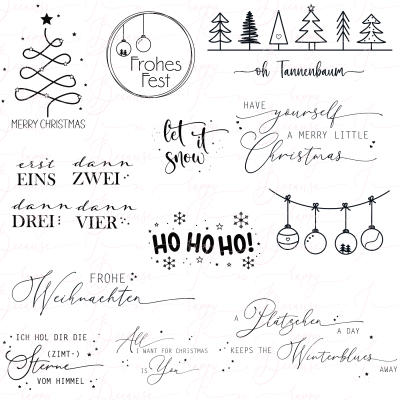 MERRY CHRISTMAS
Frohes
Fest
oh Tannenbaum
let it
snow
HAVE yourself
A MERRY LITTLE
Christmas
erst dann
EINS ZWEI
dann dann
DREI VIER
HO HO HO!
FROHE
Weihnachten
ICH HOL DIR DIE
(ZIMT-)
Sterne
VOM HIMMEL
All
I WANT FOR CHRISTMAS
IS You
A Plätzchen
A DAY
KEEPS THE Winterblues
AWAY